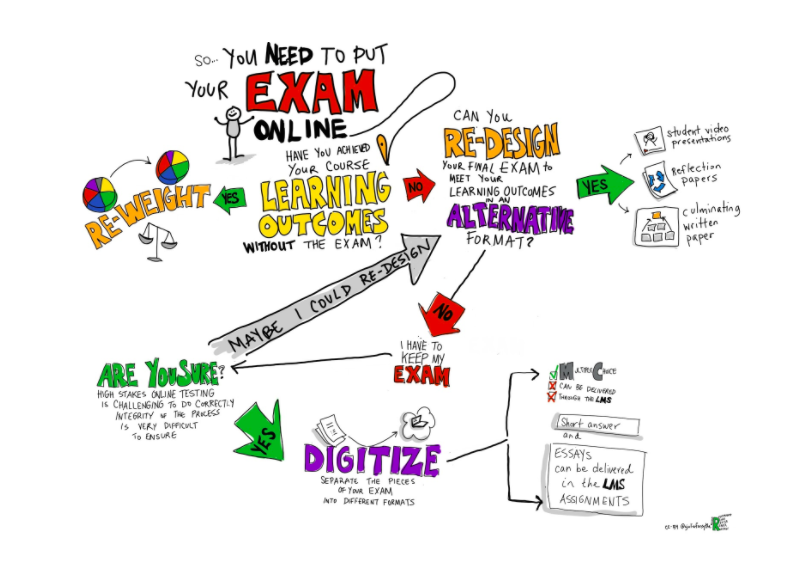 SO... YOU NEED TO PUT
YOUR EXAM
ONLINE
HAVE YOU ACHIEVED
YOUR COURSE
LEARNING
OUTCOMES
WITHOUT THE EXAM?
YES
RE-WEIGHT
NO
CAN YOU
RE-DESIGN
YOUR FINAL EXAM to
MEET YOUR
LEARNING OUTCOMES
IN AN
ALTERNATIVE
FORMAT?
YES
student video
presentations
Reflection
papers
culminating
written
paper
NO
I HAVE TO
KEEP MY
EXAM
MAYBE I COULD RE-DESIGN
ARE YOU SURE?
HIGH STAKES ONLINE TESTING
IS CHALLENGING TO DO CORRECTLY
INTEGRITY OF THE PROCESS
IS VERY DIFFICULT
TO ENSURE
YES
DIGITIZE
SEPARATE THE PIECES
OF YOUR EXAM
INTO DIFFERENT FORMATS
MULTIPLE CHOICE
CAN BE DELIVERED
THROUGH THE LMS
Short answer
and
ESSAYS
can be delivered
in the LMS
ASSIGNMENTS